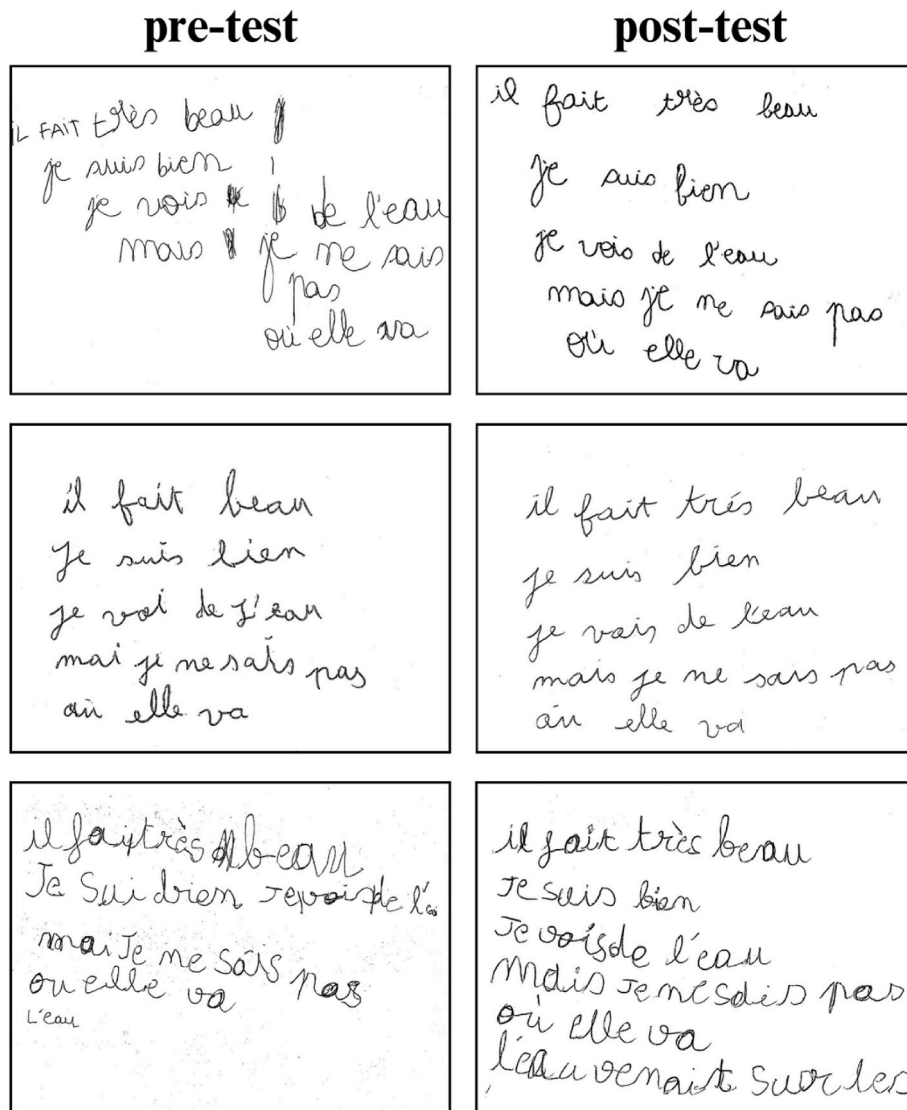 pre-test
post-test
IL FAIT très beau
je suis bien
je vois de l'eau
mais je ne sais
pas
où elle va
il fait très beau
je suis bien
je vois de l'eau
mais je ne sais pas
où elle va
il fait beau
je suis bien
je voi de l'eau
mai je ne sais pas
où elle va
il fait trés beau
je suis bien
je vois de l'eau
mais je ne sais pas
où elle va
il fay très beau
Je Sui bien Je vois de l'
mai Je ne sais pas
ou elle va
L'eau
il fait très beau
Je suis bien
Je vois de l'eau
mais Je ne sais pas
où elle va
l'eau venait sur les